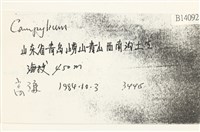 Campylium
B14092
山东省青岛崂山青山西南沟土生
海拔 450m
高谦 1984.10.3 3446